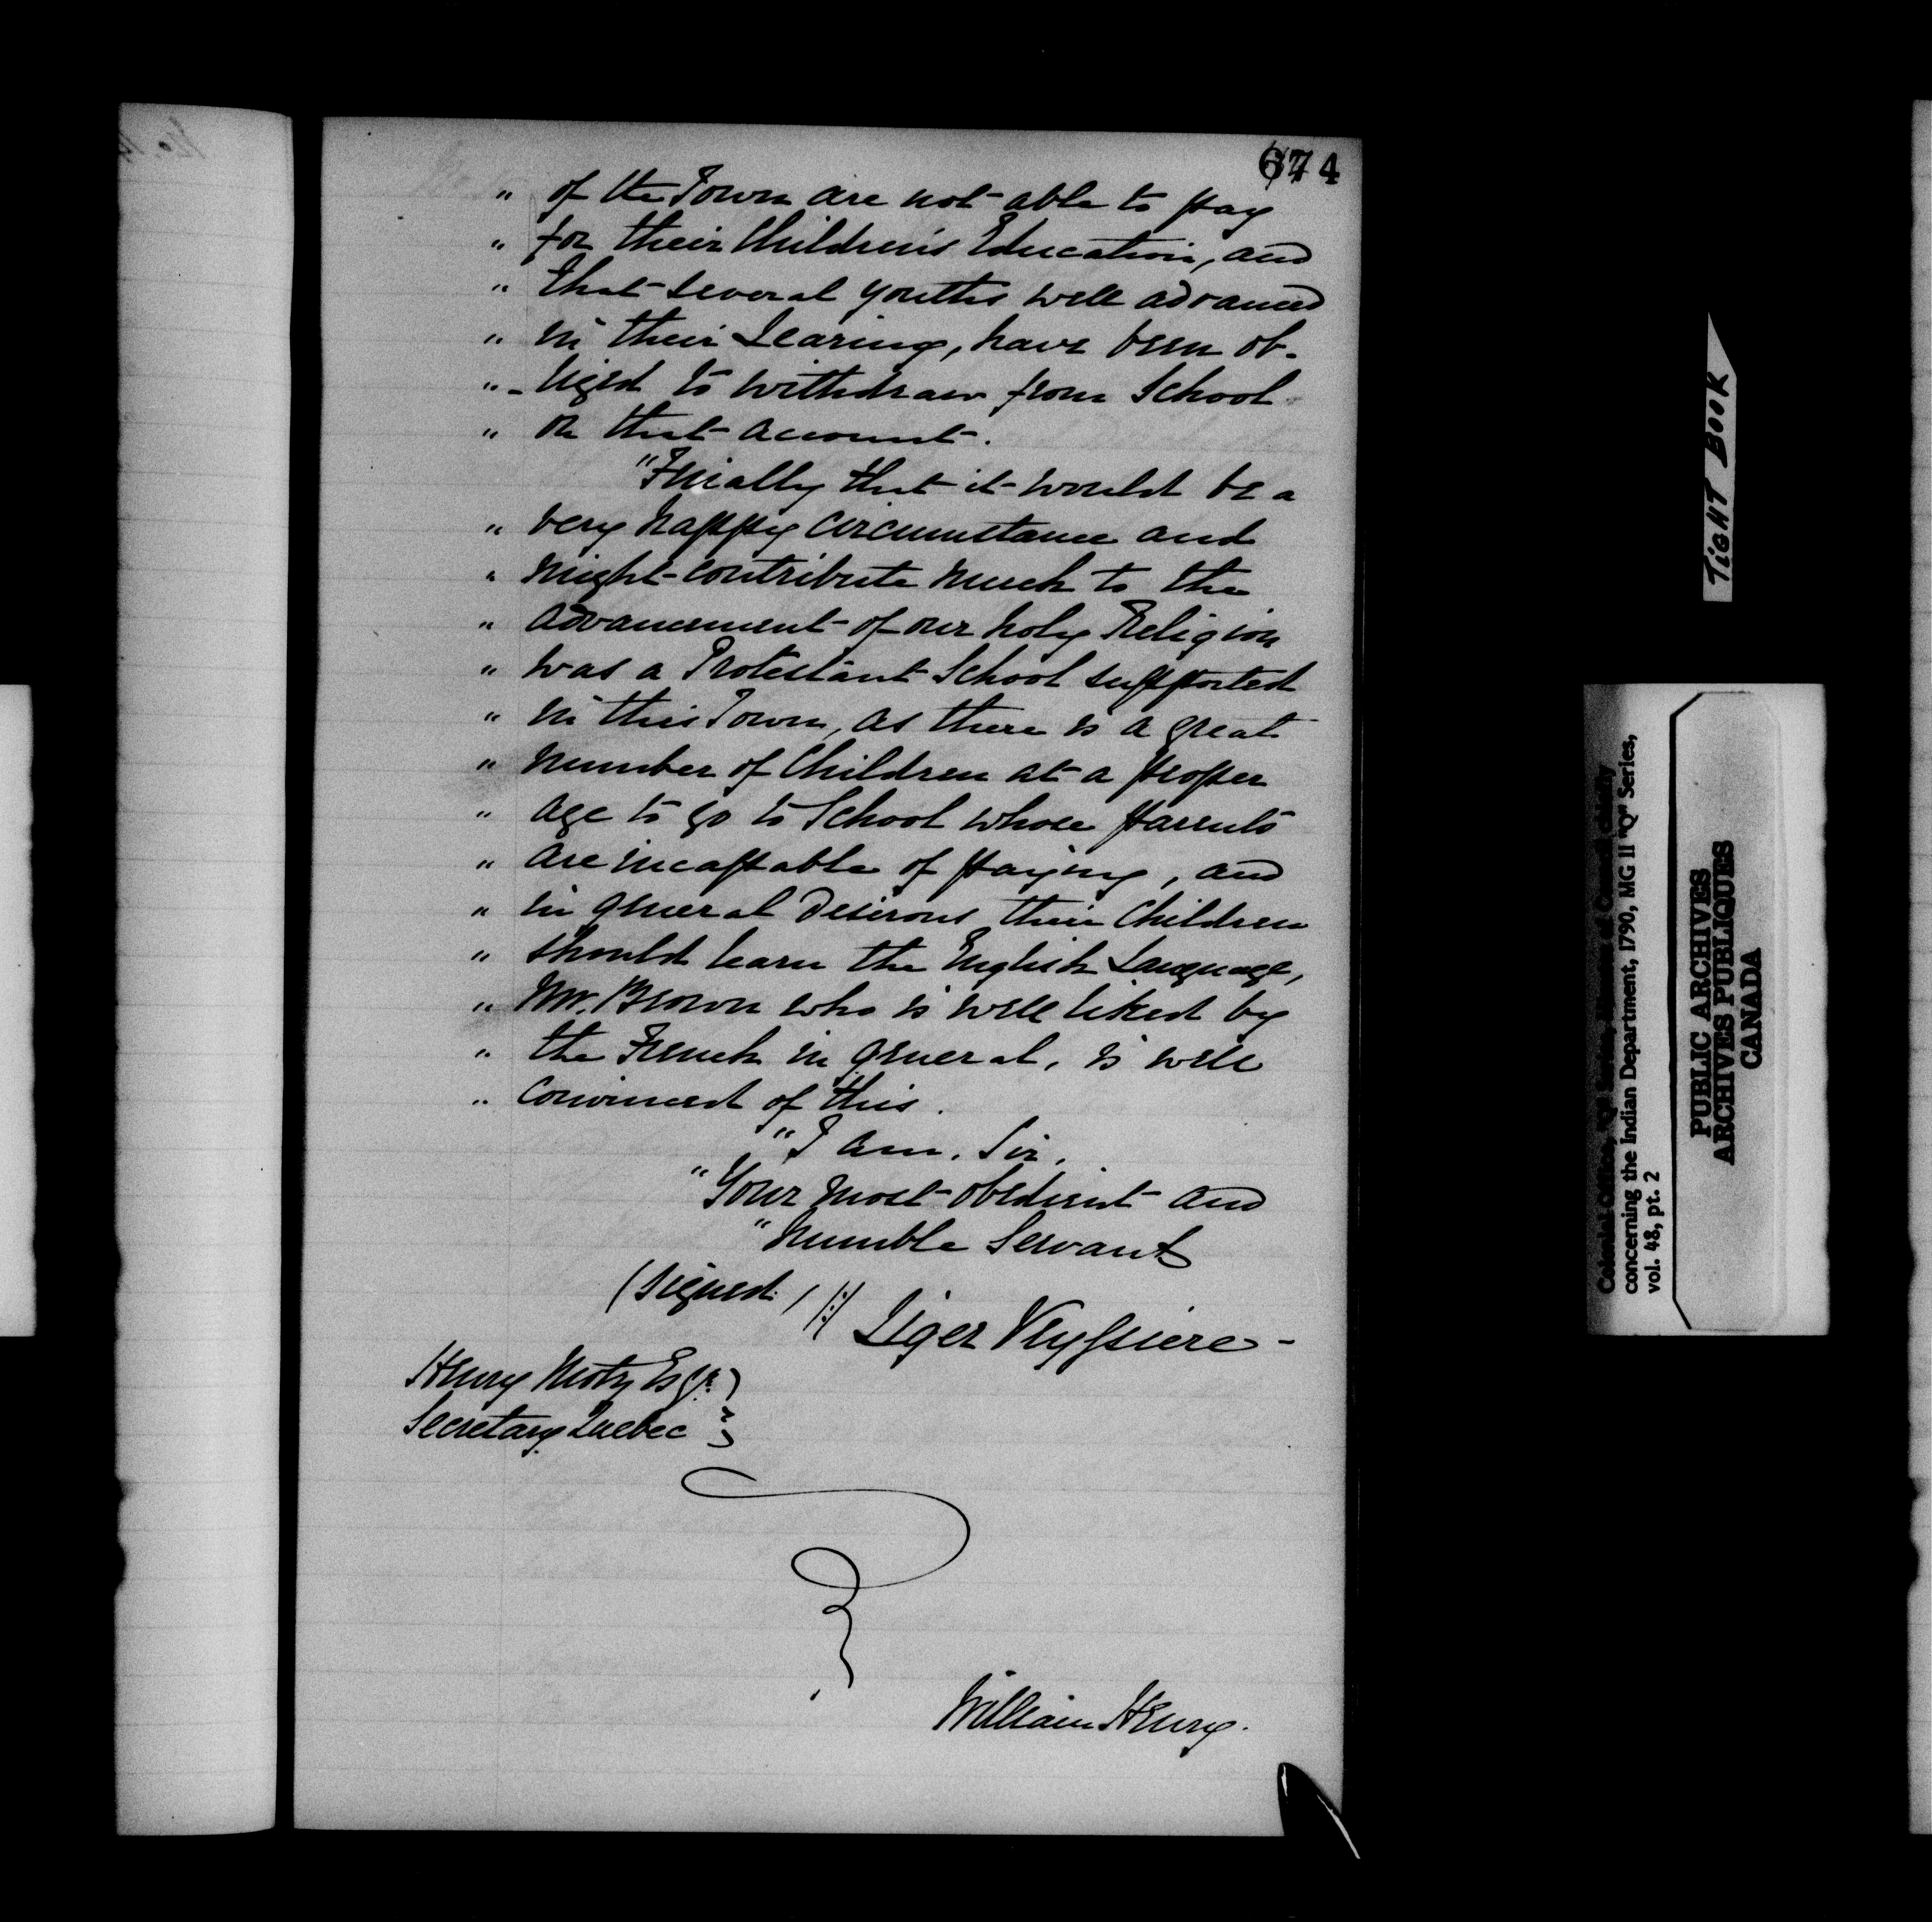 674
" of the Town are not able to pay
" for their Children's Education, and
" that several youths well advanced
" in their Learing, have been ob-
" -liged to withdraw from School
" on that account.
"Finally that it would be a
" very happy circumstance and
" might contribute much to the
" advancement of our holy Religion
" was a Protestant School supported
" in this Town, as there is a great
" number of Children at a proper
" age to go to School whose parents
" are incapable of paying, and
" in general desirous their Children
" should learn the English Language,
" Mr. Brown who is well liked by
" the French in general, is well
" convinced of this.
"I am. Sir,
"Your most obedient and
"humble Servant
(signed.) Liger Veyssiere -
Henry Motz Esqr. }
Secretary Quebec }
William Henry.
TIGHT BOOK
Colonial Office, "Q" Series, Minutes of Council chiefly
concerning the Indian Department, 1790, MG 11 "Q" Series,
vol. 48, pt. 2
PUBLIC ARCHIVES
ARCHIVES PUBLIQUES
CANADA